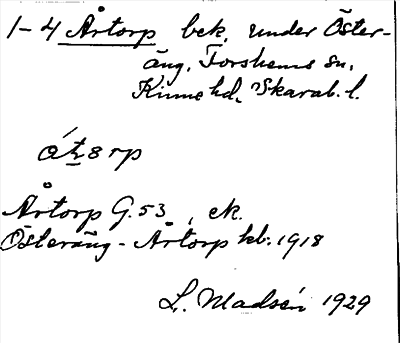 1-4 Årtorp bek. under Öster-
äng, Forshems sn,
Kinne hd, Skarab. l.
Årtorp G. 53, ek.
Österäng - Årtorp kb. 1918
L. Madsén 1929